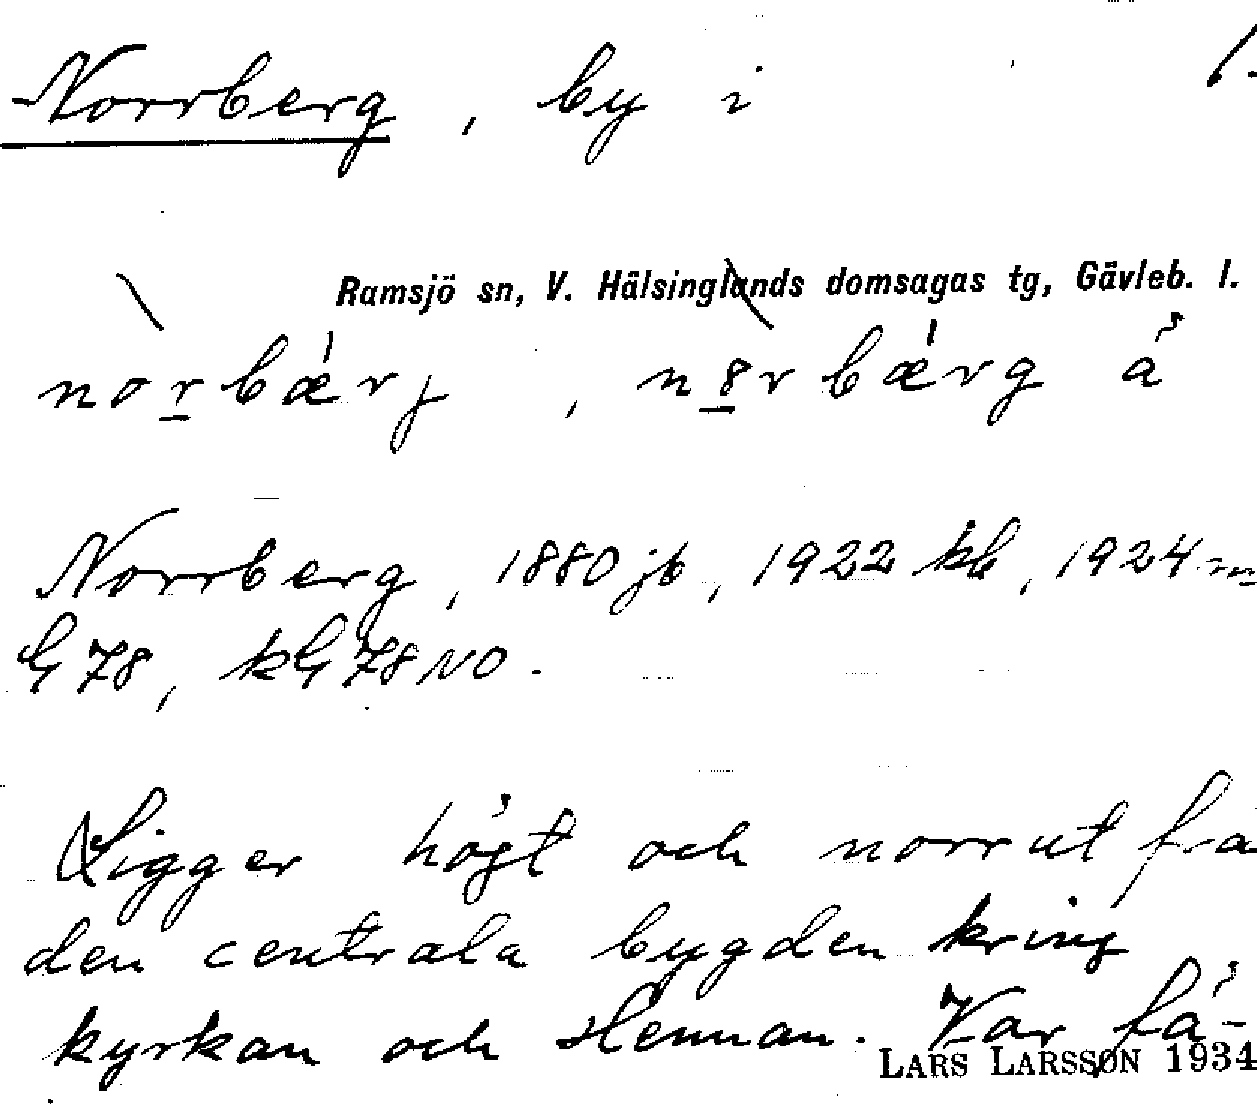 Norrberg, by i 1.
Ramsjö sn, V. Hälsinglands domsagas tg, Gävleb. l.
norbærj, n8rbærg å
Norrberg, 1880 jb, 1922 kb, 1924 m
G 78, kG 78 NO.
Ligger högt och norrut fra
den centrala bygden kring
kyrkan och Hennan. Var få-
LARS LARSSON 1934